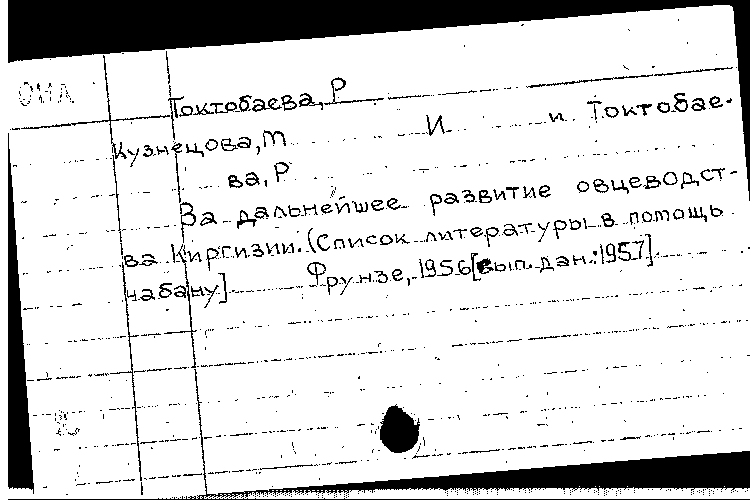 Токтобаева, Р
Кузнецова, М И и Токтобае-
ва, Р
За дальнейшее развитие овцеводст-
ва Киргизии. (Список литературы в помощь
чабану]. Фрунзе, 1956 [вып. дан.: 1957].